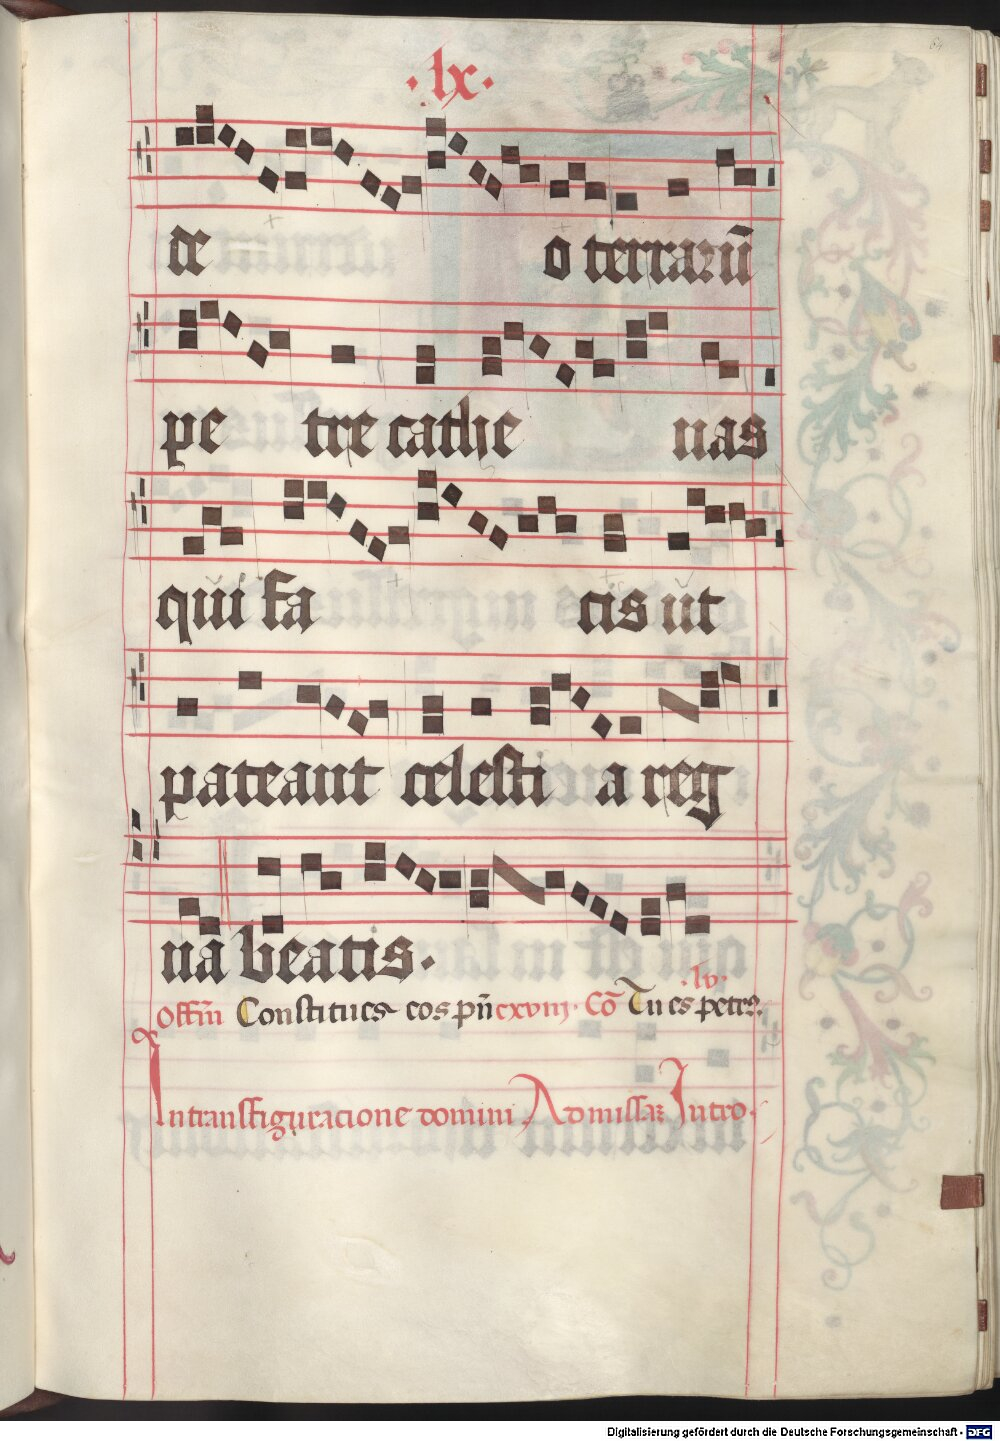 ·lx·
64
de o terrarū
pe tre cathe nas
qui fa cis ut
pateant celesti a reg
na beatis.
·lv·
Offm̄ Constitues eos pñ cxviij· Cō Tu es petrꝰ.
In transfiguracione domini Ad missaꝫ Intro·
Digitalisierung gefördert durch die Deutsche Forschungsgemeinschaft - DFG